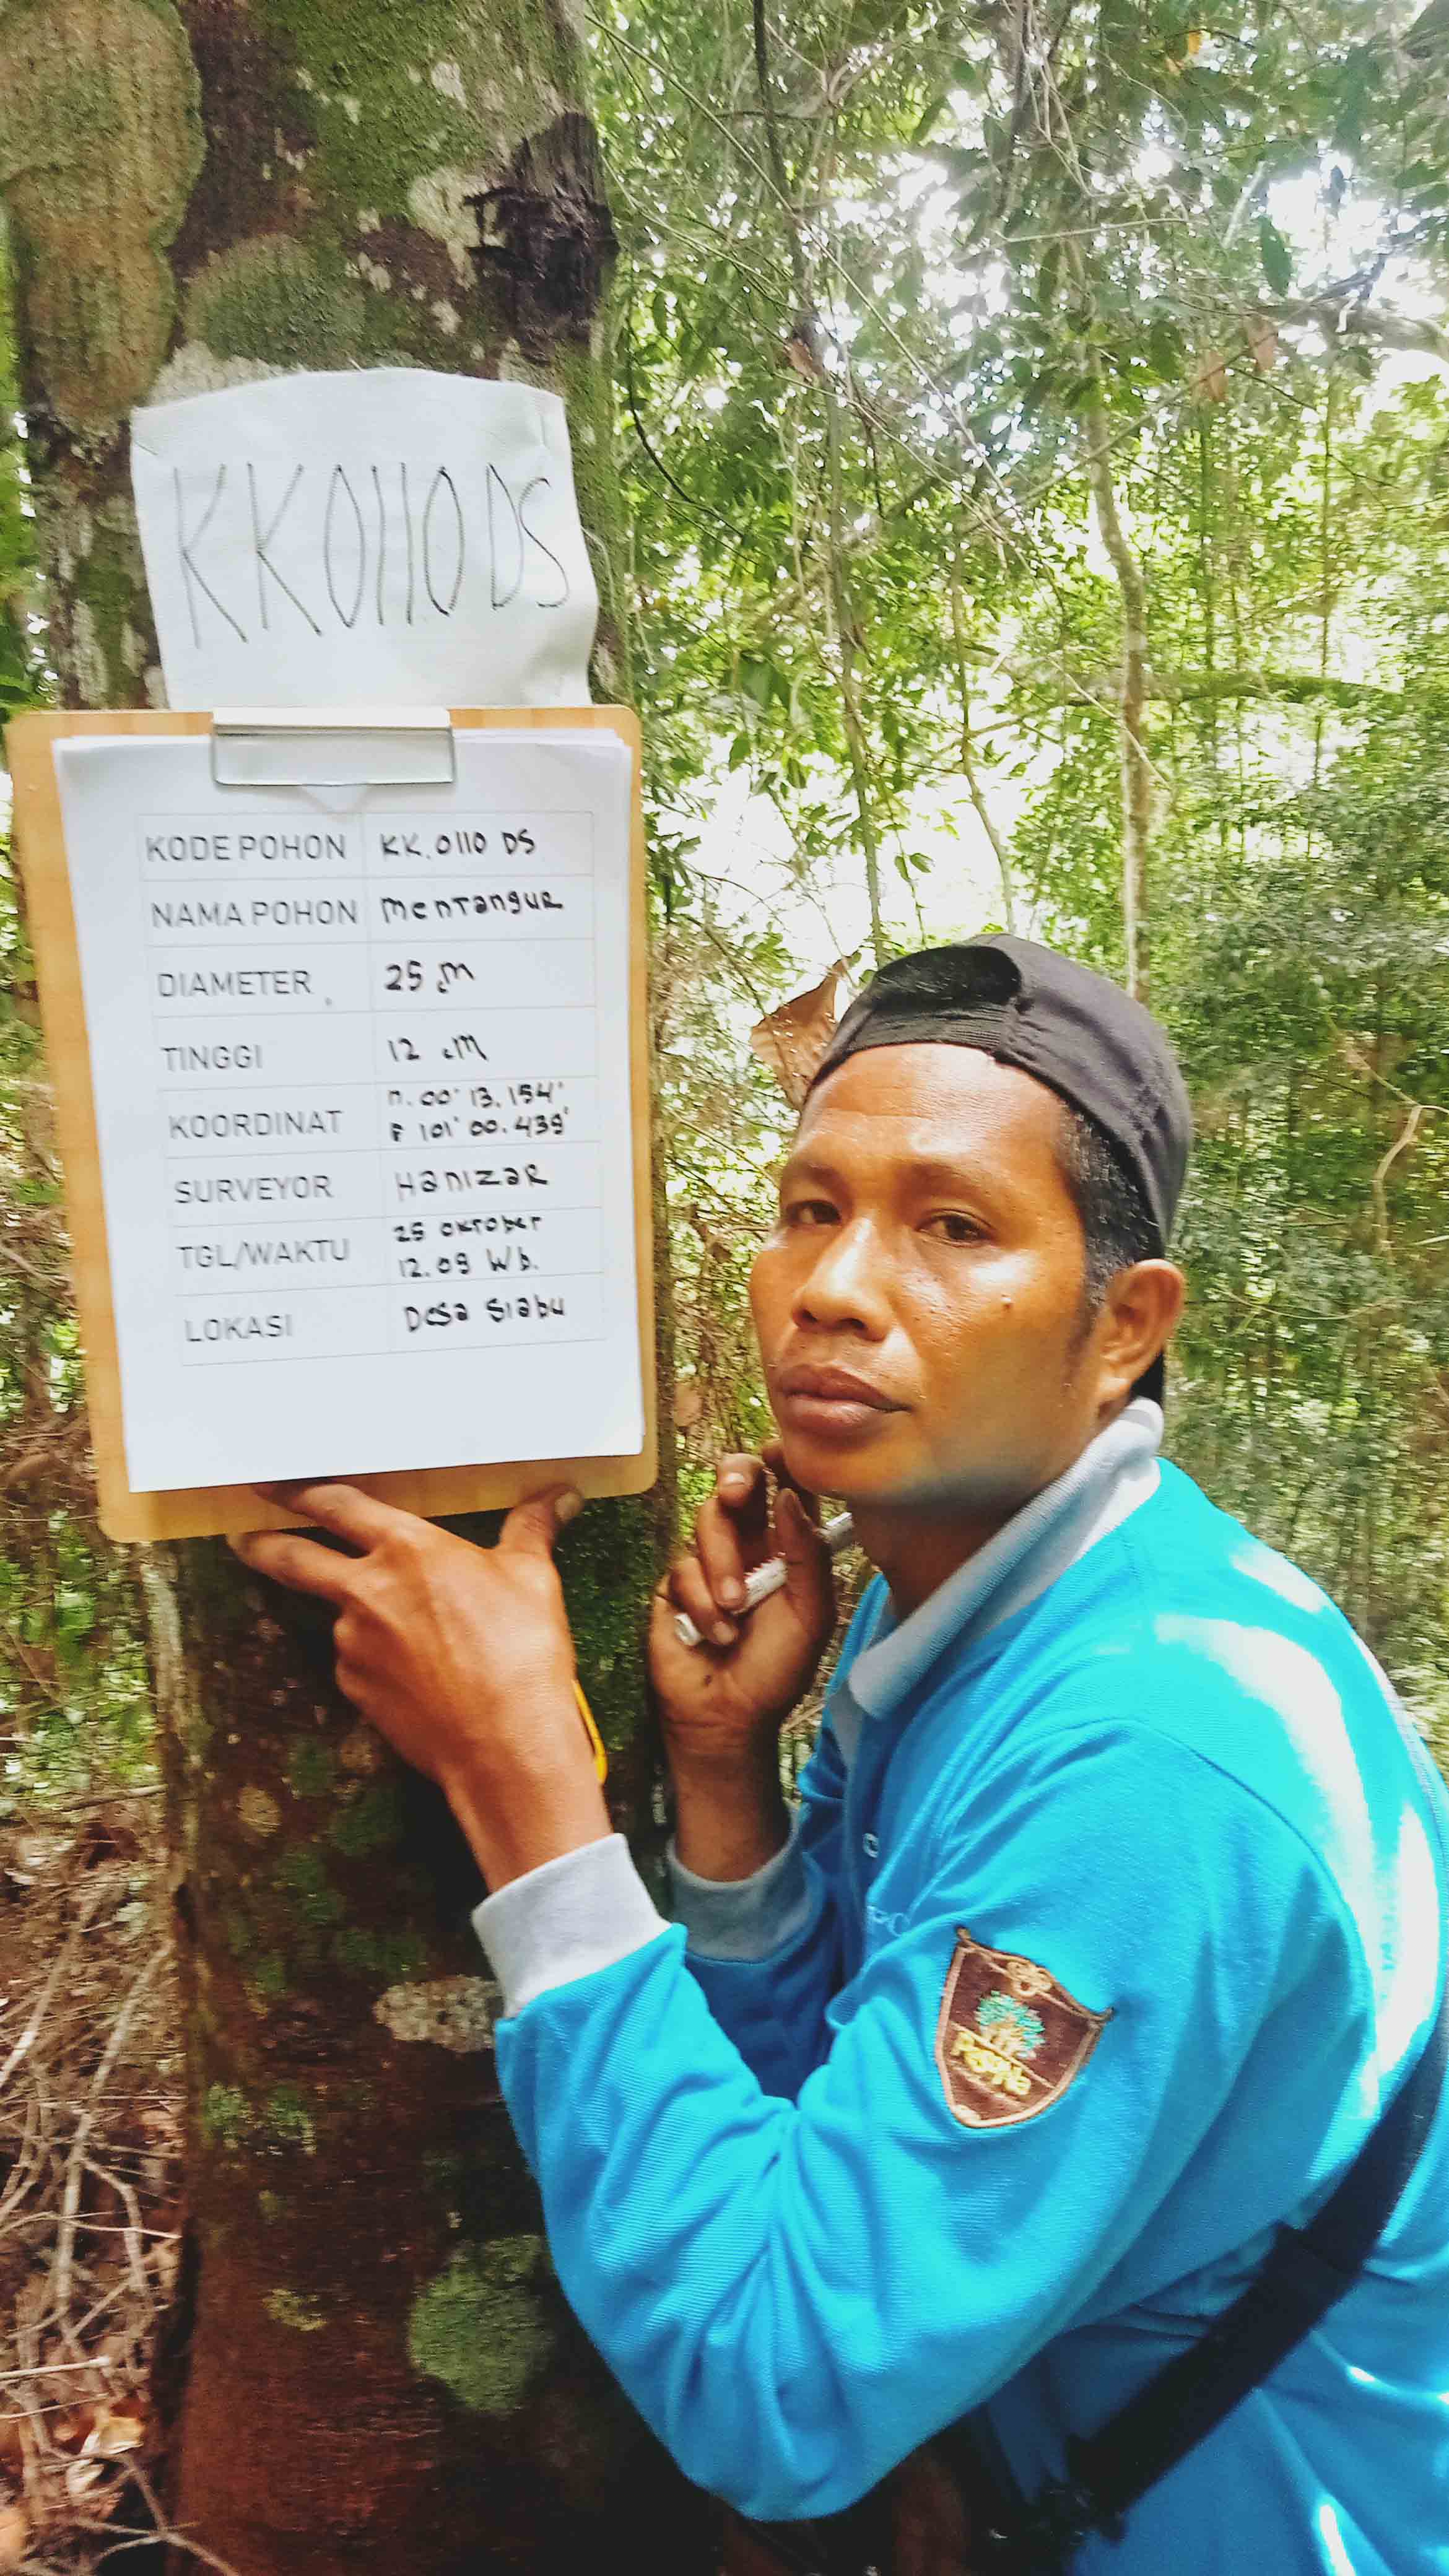 KK0110DS
KODE POHON KK.0110 DS
NAMA POHON MenTangUR
DIAMETER 25 cM
TINGGI 12 cM
KOORDINAT n. 00° 13. 154'
E 101° 00. 439'
SURVEYOR HanIzaR
TGL/WAKTU 25 OKTober
12.09 Wb.
LOKASI Desa SIabu